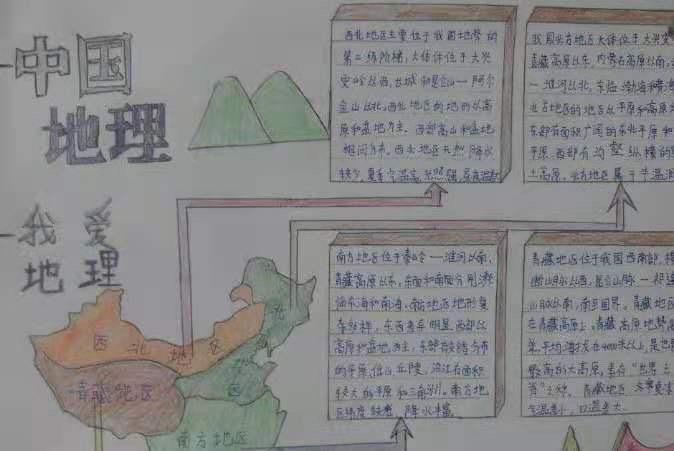 中国
地理
我爱
地理
西北地区主要位于我国地势的
第二级阶梯,大体位于大兴
安岭以西,长城和昆仑山一阿尔
金山以北,西北地区的地形以高
原和盆地为主。西部高山和盆地
相间分布。西北地区天然降水
较少,夏季气温高,光照强,昼夜温差
我国北方地区大体位于大兴安
青藏高原以东,内蒙古高原以南,
一淮河以北,东临渤海和黄海
北方地区的地区以平原和高原为
东部有面积广阔的东北平原和
平原,西部有沟壑纵横的
土高原。北方地区属于半温润
南方地区位于秦岭一淮河以南,
青藏高原以东,东面和南面分别濒
临东海和南海,南方地区地形复
杂多样,东西差异明显,西部以
高原和盆地为主,东部交错分布
的平原,低山丘陵,沿江有面积
较大的平原和三角洲。南方地
区纬度较低,降水丰富
青藏地区位于我国西南部,横
断山脉以西,昆仑山脉一祁连
山脉以南,南至国界。青藏地区
在青藏高原上,青藏高原地势高
平均海拔在4000米以上,是世
最高的大高原,素有“世界
脊”之称。青藏地区
气温
西北地区
青藏地区
北
方
地
区
南方地区